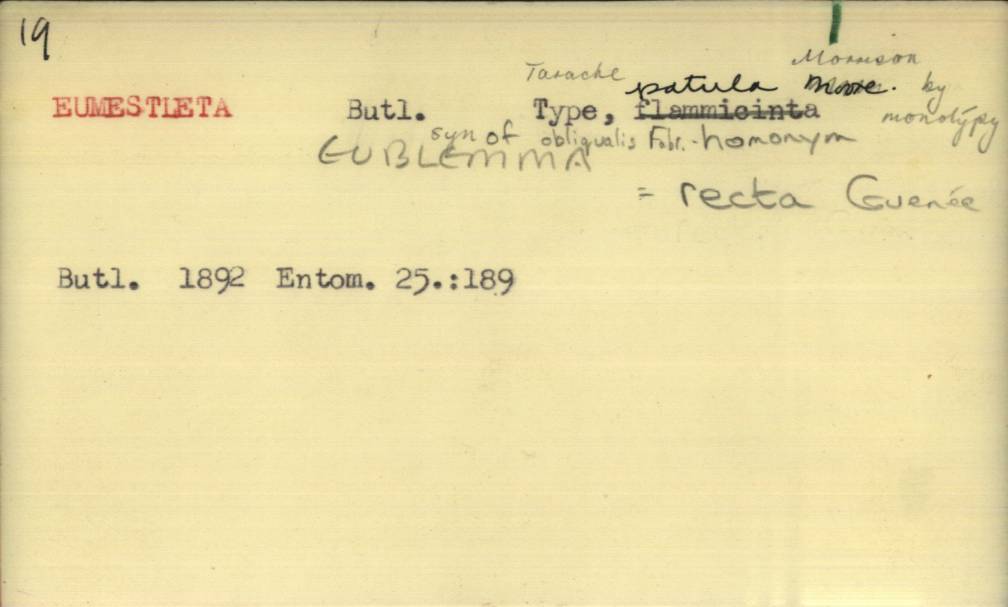 19
Tarache patula Morrison by monotypy
EUMESTLETA Butl. Type, flammicinta Moore.
syn of obliqualis Fabr. - homonym
EUBLEMMA
= recta Guenée
Butl. 1892 Entom. 25.:189